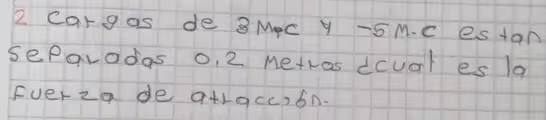 2 cargas de 3 M.C y -5 M.C estan
separadas 0.2 metros ¿cual es la
fuerza de atracción.